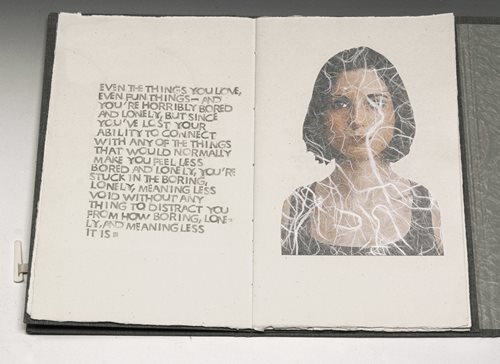 EVEN THE THINGS YOU LOVE,
EVEN FUN THINGS—AND
YOU'RE HORRIBLY BORED
AND LONELY, BUT SINCE
YOU'VE LOST YOUR
ABILITY TO CONNECT
WITH ANY OF THE THINGS
THAT WOULD NORMALLY
MAKE YOU FEEL LESS
BORED AND LONELY, YOU'RE
STUCK IN THE BORING,
LONELY, MEANING LESS
VOID WITHOUT ANY
THING TO DISTRACT YOU
FROM HOW BORING, LONE-
LY, AND MEANING LESS
IT IS